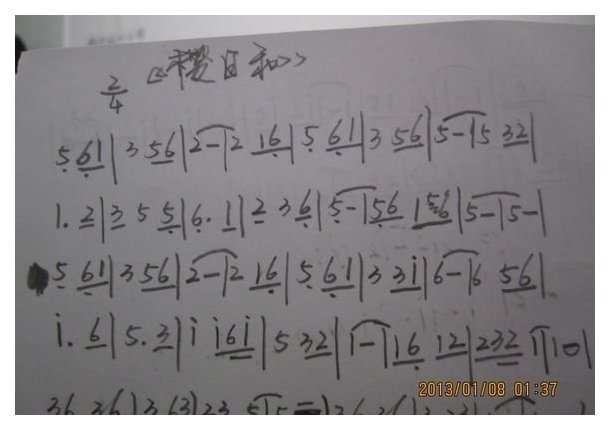 2/4 《樱目和》
5 61|3 56|2-|2 16|5 61|3 56|5-|5 32|
1. 2|3 5 5|6. 1|2 3 6|5-|56 156|5-|5-|
5 61|3 56|2-|2 16|5 61|3 31|6-|6 56|
i. 6|5. 3|i i6i|5 32|1-|16 12|232 1|10|
36 36|3 63|23 5|5
2013/01/08 01:37